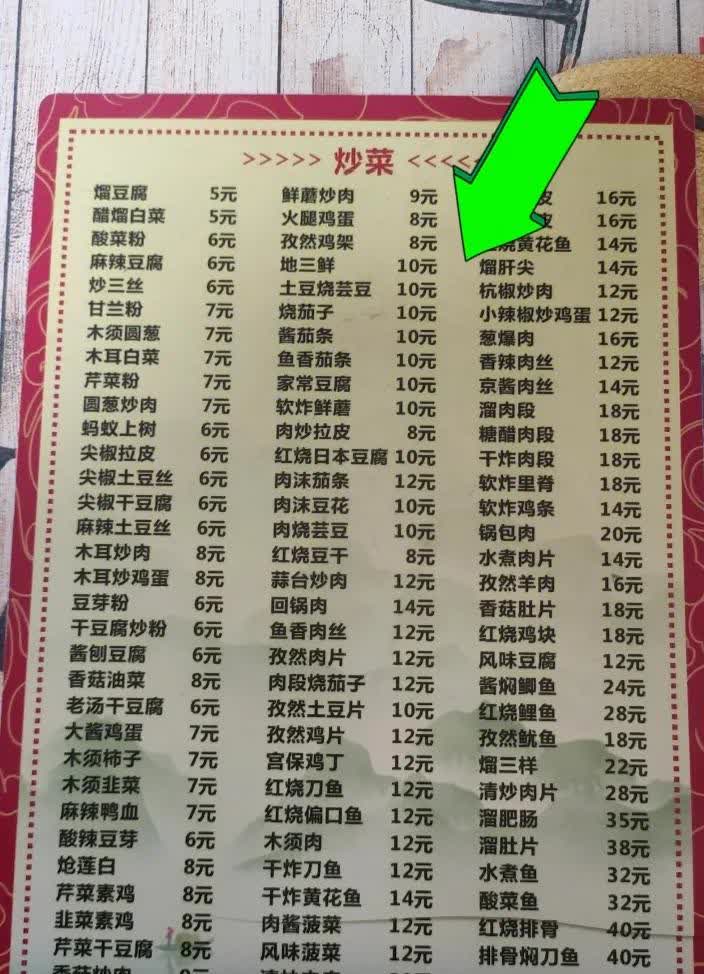 >>>>> 炒菜 <<<<
馏豆腐 5元 鲜蘑炒肉 9元 皮 16元
醋馏白菜 5元 火腿鸡蛋 8元 皮 16元
酸菜粉 6元 孜然鸡架 8元 烧黄花鱼 14元
麻辣豆腐 6元 地三鲜 10元 馏肝尖 14元
炒三丝 6元 土豆烧芸豆 10元 杭椒炒肉 12元
甘兰粉 7元 烧茄子 10元 小辣椒炒鸡蛋 12元
木须圆葱 7元 酱茄条 10元 葱爆肉 16元
木耳白菜 7元 鱼香茄条 10元 香辣肉丝 12元
芹菜粉 7元 家常豆腐 10元 京酱肉丝 14元
圆葱炒肉 7元 软炸鲜蘑 10元 溜肉段 18元
蚂蚁上树 6元 肉炒拉皮 8元 糖醋肉段 18元
尖椒拉皮 6元 红烧日本豆腐 10元 干炸肉段 18元
尖椒土豆丝 6元 肉沫茄条 12元 软炸里脊 18元
尖椒干豆腐 6元 肉沫豆花 10元 软炸鸡条 14元
麻辣土豆丝 6元 肉烧芸豆 10元 锅包肉 20元
木耳炒肉 8元 红烧豆干 8元 水煮肉片 14元
木耳炒鸡蛋 8元 蒜台炒肉 12元 孜然羊肉 16元
豆芽粉 6元 回锅肉 14元 香菇肚片 18元
干豆腐炒粉 6元 鱼香肉丝 12元 红烧鸡块 18元
酱刨豆腐 6元 孜然肉片 12元 风味豆腐 12元
香菇油菜 8元 肉段烧茄子 12元 酱焖鲫鱼 24元
老汤干豆腐 6元 孜然土豆片 10元 红烧鲤鱼 28元
大酱鸡蛋 7元 孜然鸡片 12元 孜然鱿鱼 18元
木须柿子 7元 宫保鸡丁 12元 馏三样 22元
木须韭菜 7元 红烧刀鱼 12元 清炒肉片 28元
麻辣鸭血 7元 红烧偏口鱼 12元 溜肥肠 35元
酸辣豆芽 6元 木须肉 12元 溜肚片 38元
炝莲白 8元 干炸刀鱼 12元 水煮鱼 32元
芹菜素鸡 8元 干炸黄花鱼 14元 酸菜鱼 32元
韭菜素鸡 8元 肉酱菠菜 12元 红烧排骨 40元
芹菜干豆腐 8元 风味菠菜 12元 排骨焖刀鱼 40元